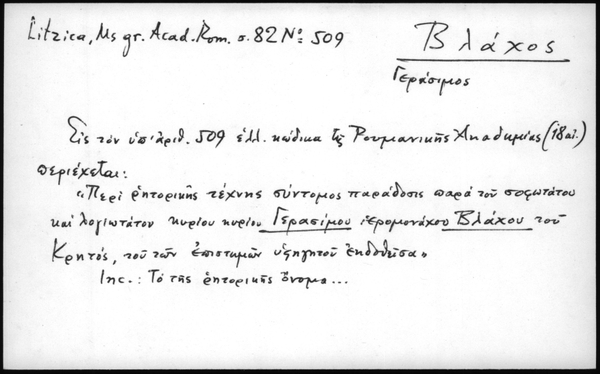 Litzica, Ms gr. Acad. Rom. σ. 82 Nº 509
Βλάχος
Γεράσιμος
Εἰς τὸν ὑπ' ἀριθ. 509 ἑλλ. κώδικα τῆς Ρουμανικῆς Ἀκαδημίας (18 αἰ.)
περιέχεται:
«Περὶ ῥητορικῆς τέχνης σύντομος παράδοσις παρὰ τοῦ σοφωτάτου
καὶ λογιωτάτου κυρίου κυρίου Γερασίμου ἱερομονάχου Βλάχου τοῦ
Κρητός, τοῦ τῶν ἐπιστημῶν ὑφηγητοῦ ἐκδοθεῖσα»
Inc.: Τὸ τῆς ῥητορικῆς ὄνομα...